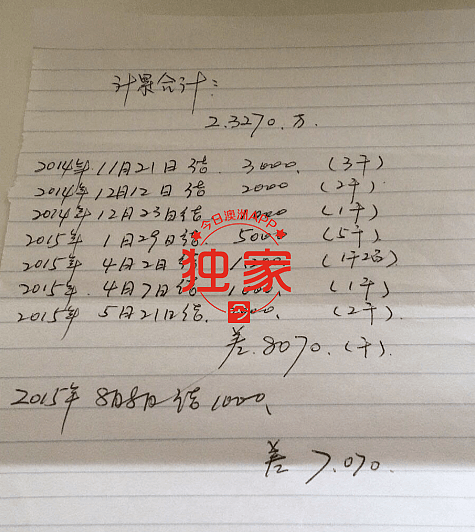 计算合计:
2.3270.万.
2014年 11月21日结 3000. (3千)
2014年 12月12日结 2000 (2千)
2014年 12月23日结 1000 (1千)
2015年 1月29日结 5000 (5千)
2015年 4月2日结 1200 (1千2百)
2015年 4月7日结 1000. (1千)
2015年 5月21日结. 2000 (2千)
差.8070.(千).
2015年 8月8日结 1000、
差 7.070.
今日澳洲APP
独家